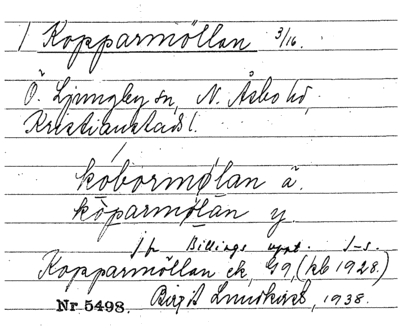 / Kopparmöllan 3/16.
Ö. Ljungby sn, N. Åsbo hd,
Kristianstads l.
kobormølan ä.
kòparmølàn y.
jfr Billings uppt. s-s.
Kopparmöllan ek, G9, (kb 1928.)
Nr 5498. Birgit Lundkvist, 1938.